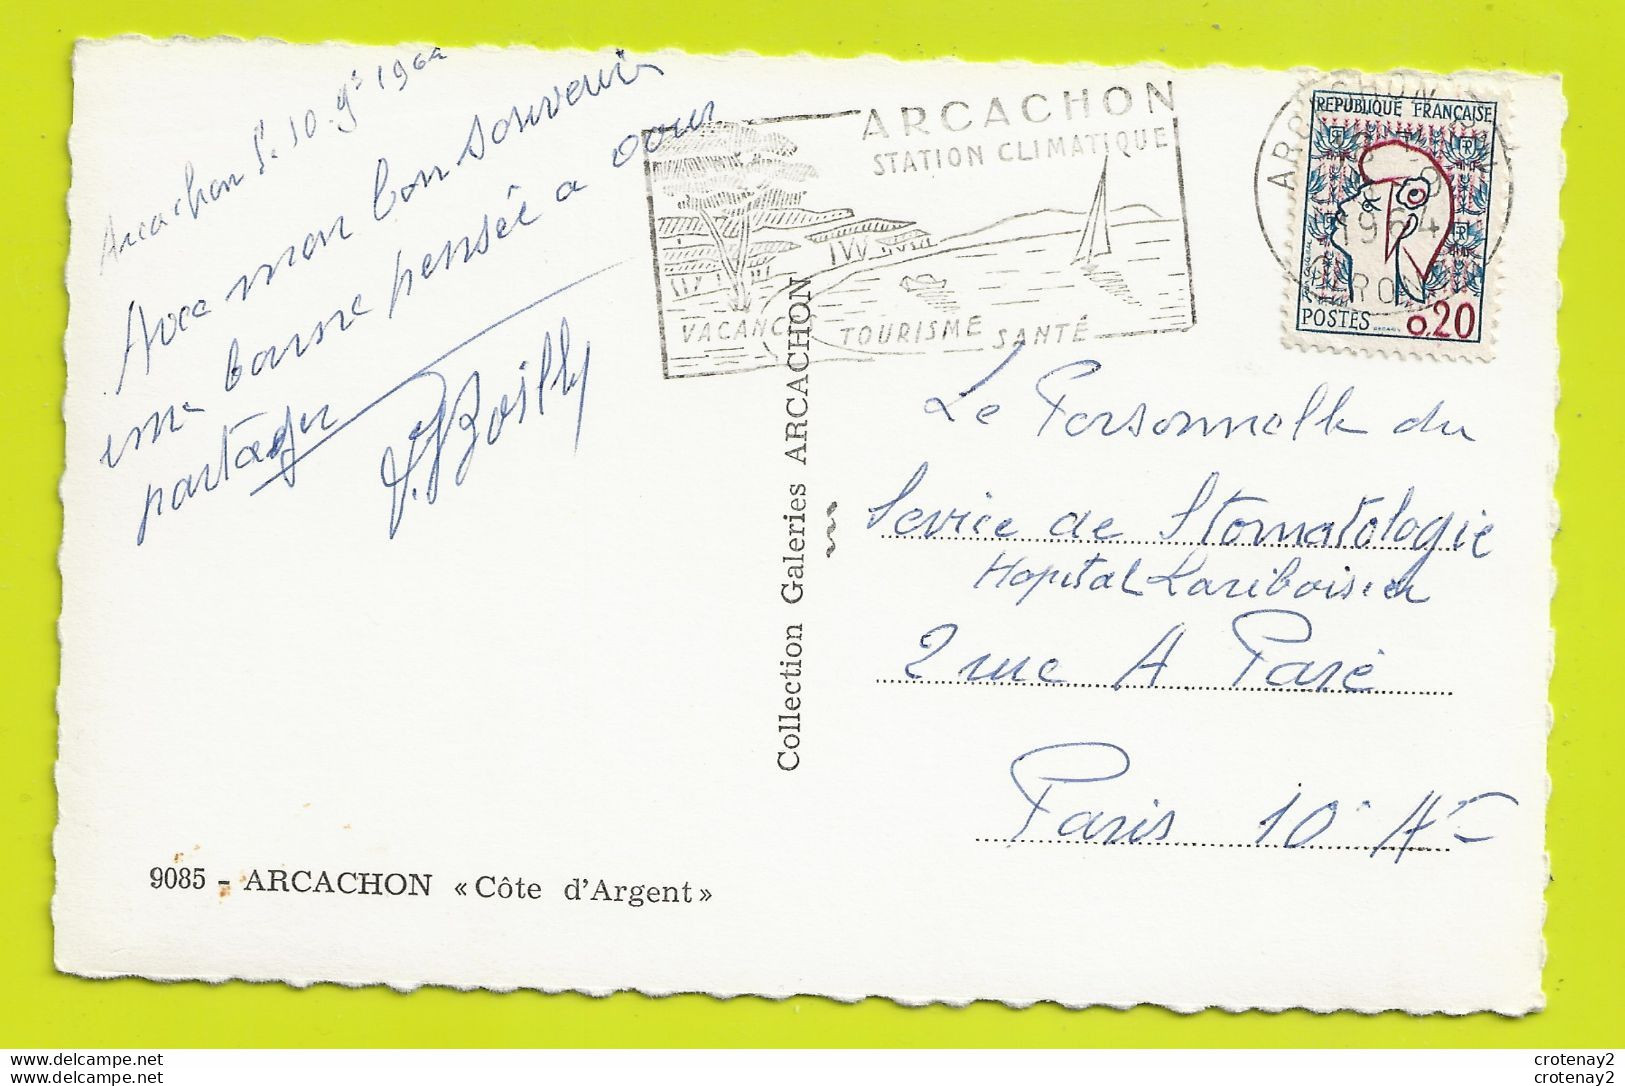 Arcachon 10 1964
Avec mon bon souvenir
une bonne pensée a vous
partager
ARCACHON
STATION CLIMATIQUE
VACANCES TOURISME SANTÉ
ARCACHON
1964
GIRONDE
REPUBLIQUE FRANÇAISE
POSTES 0,20
Le Personnelle du
Service de Stomatologie
Hopital Lariboisier
2 rue A Paré
Paris 10
Collection Galeries ARCACHON
9085 - ARCACHON « Côte d'Argent »
delcampe.net
delcampe.net
crotenay2
crotenay2